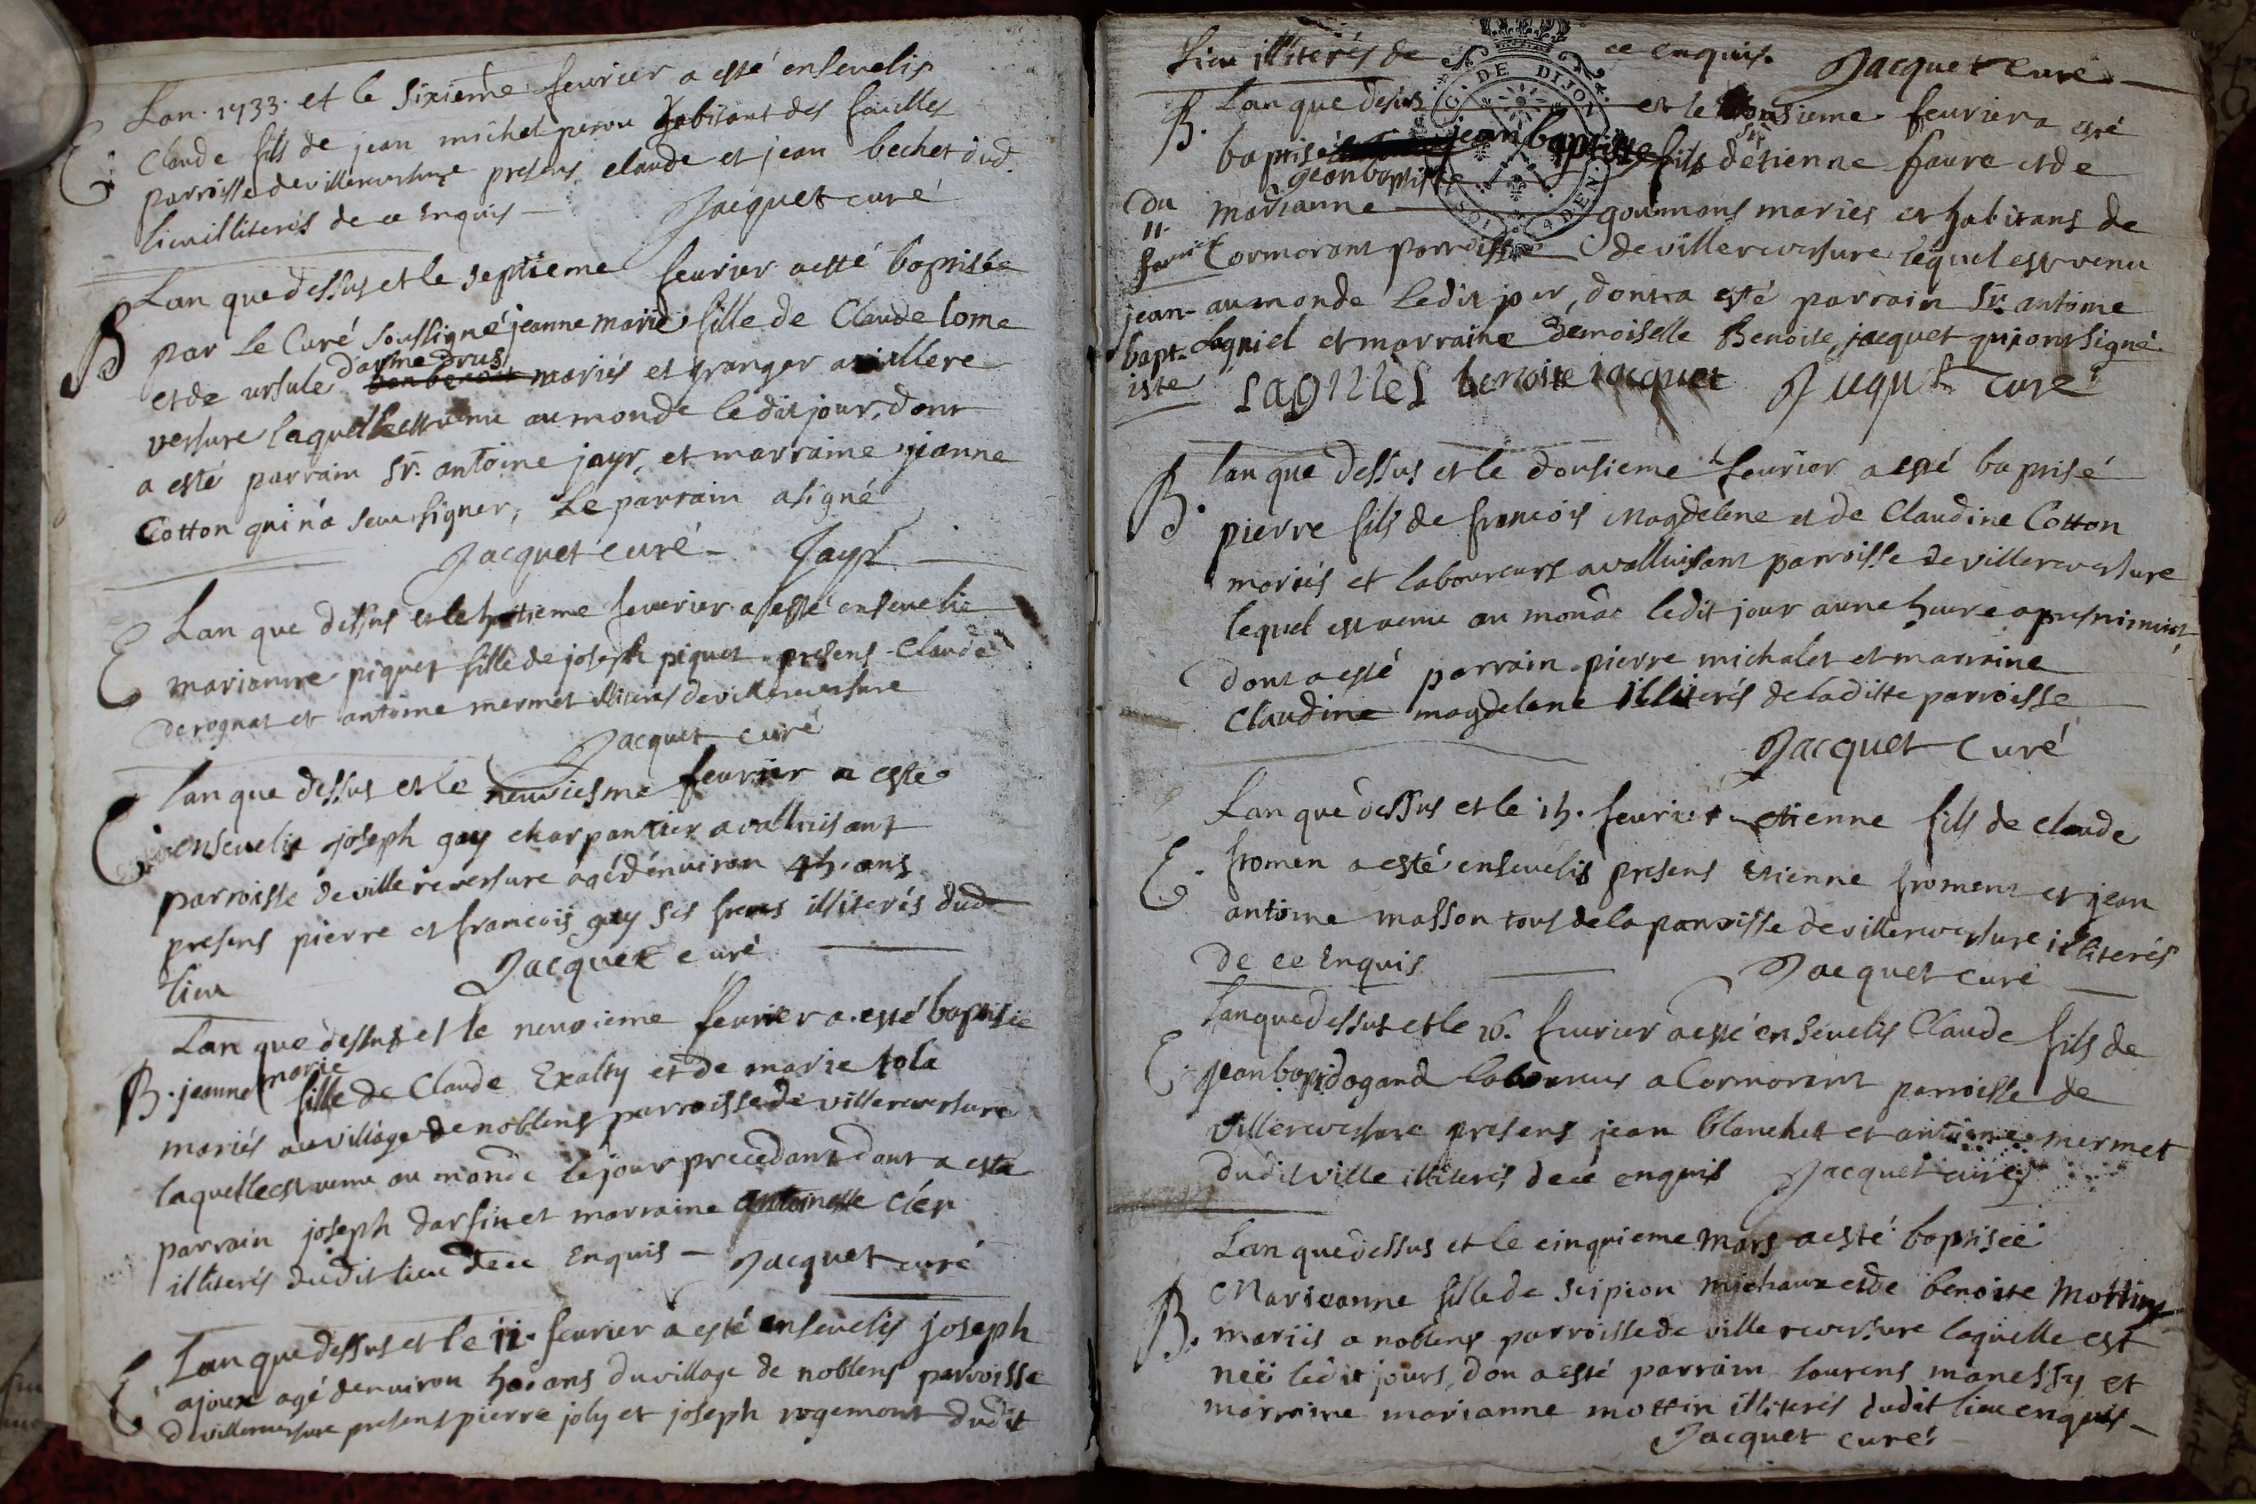 Lan. 1733. et le sixieme feurier a esté enseuelis
E Claude fils de jean michel perou habitant des faulles
parroisse de villereuersure presens claude et jean bechet dud.
lieu illiterés de ce Enquis — Jacquet curé
Lan que dessus et le septieme feurier a esté baptisée
B par Le Curé soussigné jeanne marie fille de Claude lome
et de ursule mariés et granger a villere
versure laquelle est venu au monde ledit jour, dont
a esté parrain Sr. antoine jayr, et marraine jeanne
Cotton qui n'a seu signer, Le parrain a signé
Jacquet curé — Jayr
Lan que dessus et le huitieme feurier a esté enseuelie
E marianne piquet fille de joseph piquet presens Claude
derognat et antoine mermet illiterés de villereuersure
Jacquet curé
lan que dessus et le neuviesme feurier a esté
E enseuelis joseph gay charpantier a valluisant
parroisse de villereversure agé d'enuiron 4h. ans
presens pierre et francois gay ses freres illiterés dud
lieu Jacquet curé
Lan que dessus et le neuvieme feurier a esté baptisée
B. jeanne marie fille de Claude Exalty et de marie tola
mariés au village de noblens parroisse de villereuersure
laquelle est venu au monde le jour precedant dont a esté
parrain joseph darfin et marraine antoinette clér
illiterés dudit lieu de ce Enquis — Jacquet curé
E Lan que dessus et le 11. feurier a esté enseuelis joseph
ajoux agé denuiron ans du village de noblens parroisse
de villereuersure presens pierre joly et joseph rogemont dudit
lieu illiterés de ce enquis. Jacquet curé
B. Lan que desus et le onsieme feurier a esté
baptisé jean baptiste fils detienne faure et de
jeanbaptiste
Du marianne goumons mariés et habitans de
11. feurier Cormorant parroisse de villereuersure lequel est venu
jean- au monde ledit jour, dont a esté parrain Sr. antoine
bapt- lagniel et marraine demoiselle Benoite jacquet qui ont signé
iste benoite iacquet Jacquet Curé
B. lan que dessus et le dousieme feurier a esté baptisé
pierre fils de francois Magdelene et de Claudine Cotton
mariés et laboureurs a valluisant parroisse de villereuersure
lequel est venu au monde ledit jour a une heure apres minuit
dont a esté parrain pierre michalet et marraine
Claudine magdelene illiterés de laditte parroisse
Jacquet Curé
Lan que dessus et le 1h. feurier etienne fils de claude
E. fromen a esté enseuelis presens etienne froment et jean
antoine masson tous de la parroisse de villereuersure illiterés
de ce Enquis Jacquet curé
Lan que dessus et le 16. feurier a esté enseuelis Claude fils de
E. jean bap dogand laboureur a Cormorant parroisse de
villereuersure presens jean blanchet et antoine mermet
dudit ville illiterés de ce enquis Jacquet curé
Lan que dessus et le cinquieme Mars a esté baptisée
Marieanne fille de scipion michaux et de benoite Mottin
B. mariés a noblens parroisse de villereuersure laquelle est
neë ledit jours, don a esté parrain laurens manessy et
marraine marianne mottin illiterés dudit lieu enquis —
Jacquet curé